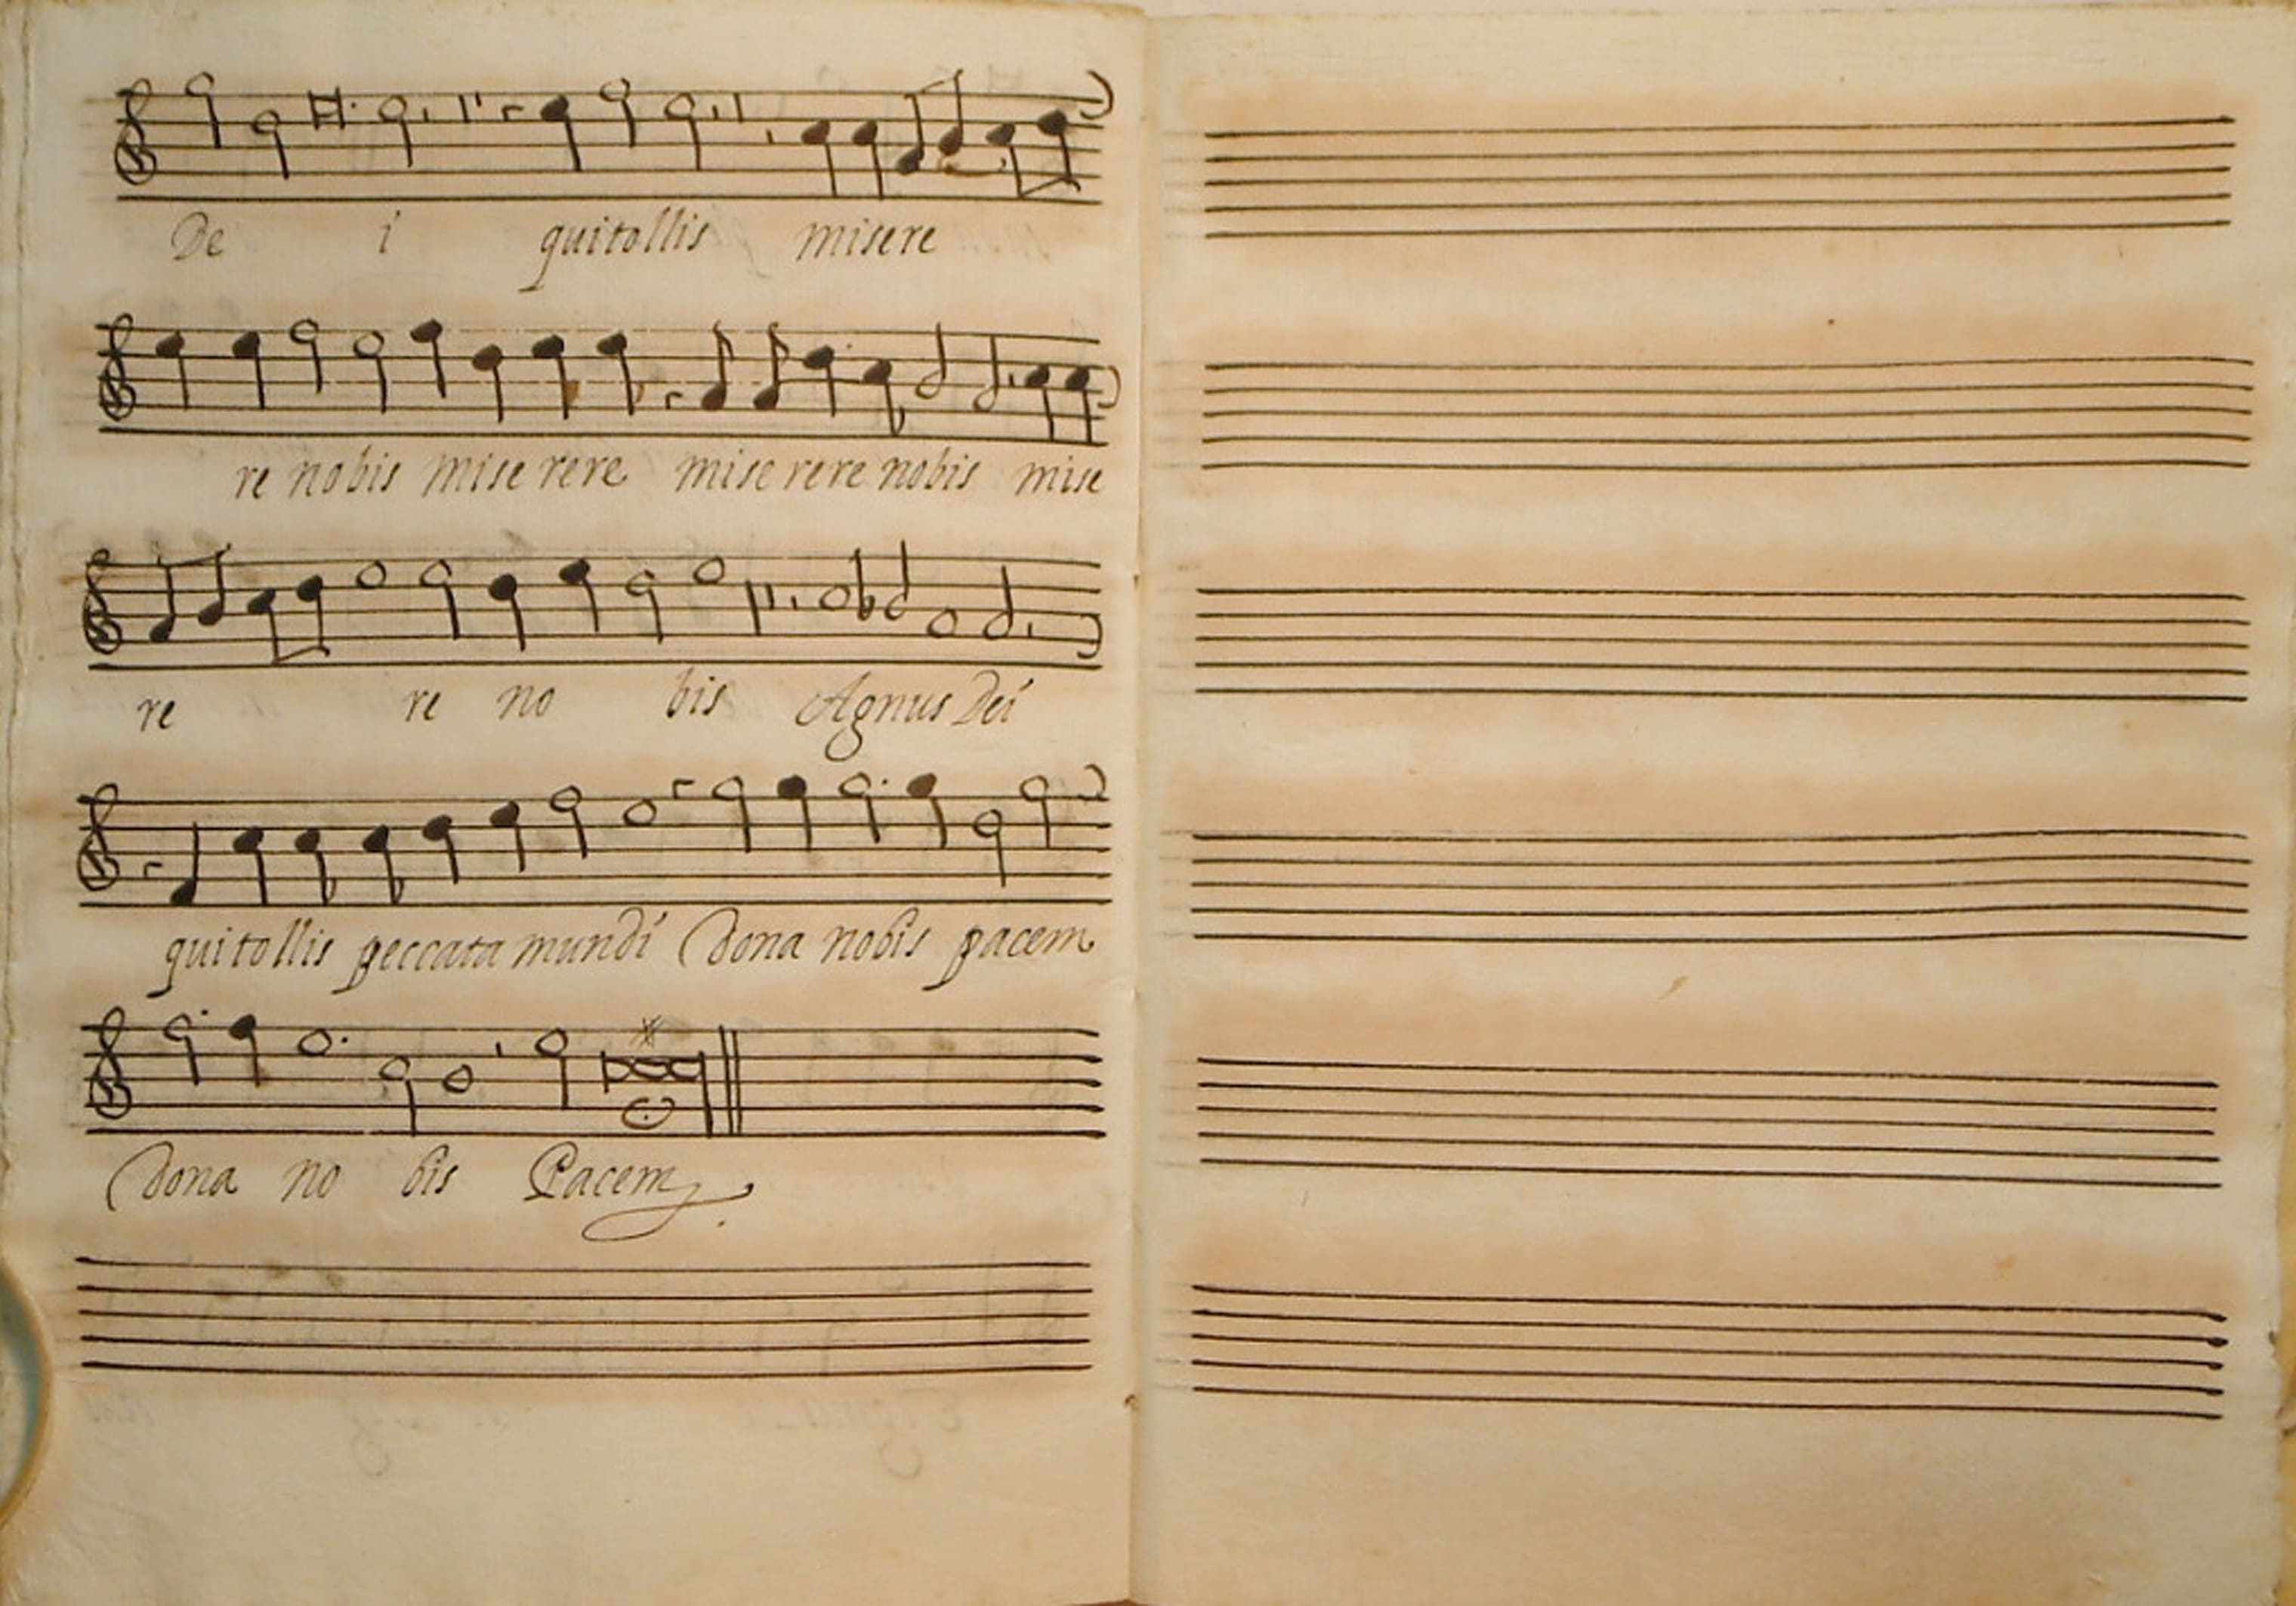 De i qui tollis misere
re nobis mise rere mise rere nobis mise
re re no bis Agnus Dei
qui tollis peccata mundi Dona nobis pacem
Dona no bis Pacem